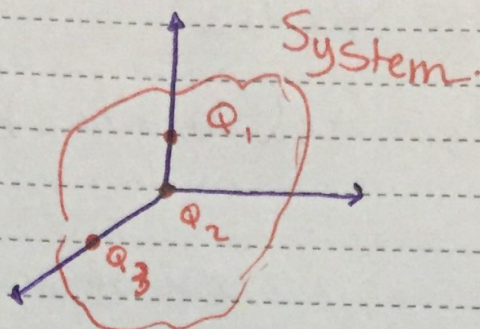 System.
Q1
Q2
Q3